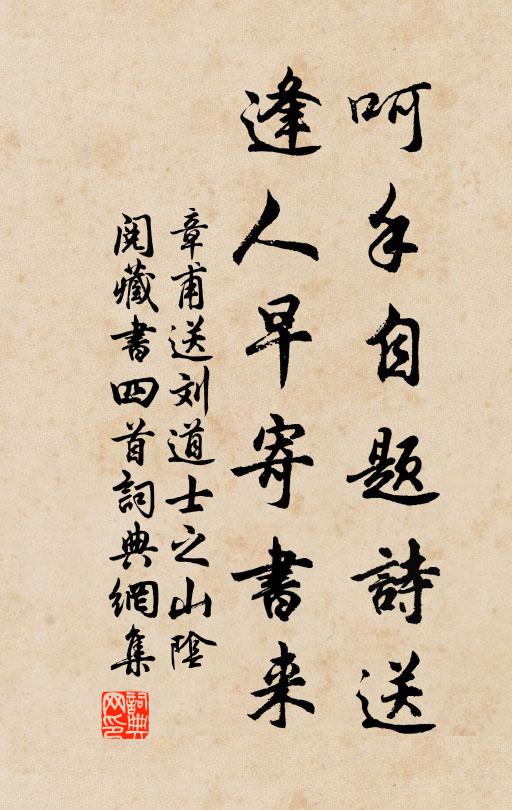 呵手自题詩送
逢人早寄書来
章甫送刘道士之山陰
阅藏書四首詞典網集
詞典网印